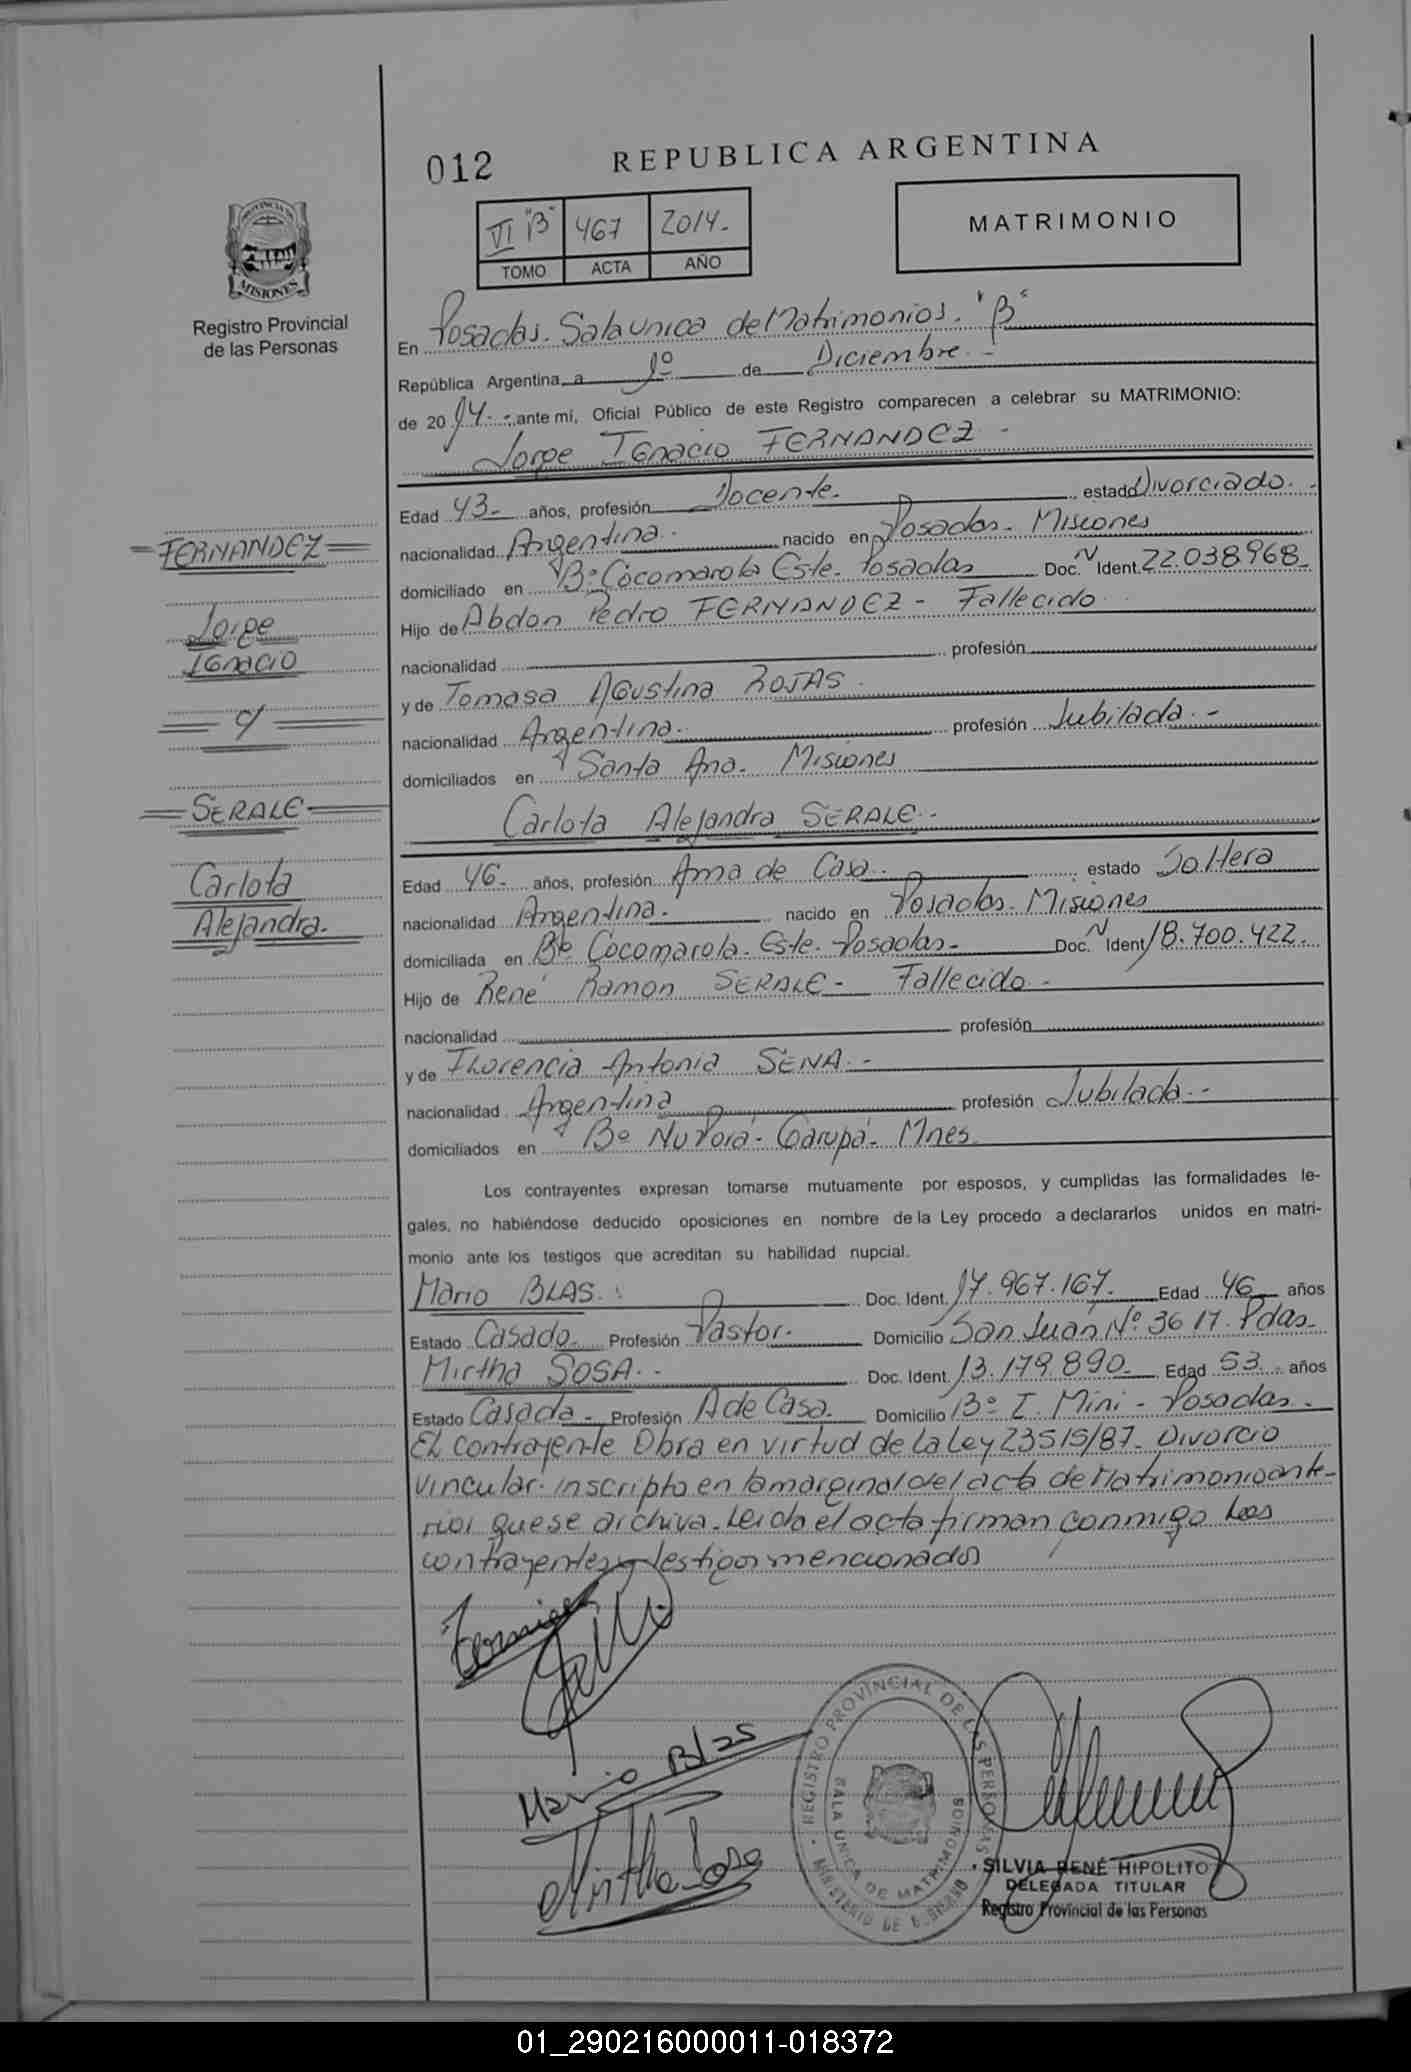 012
REPUBLICA ARGENTINA
VI "B" 467 2014.-
TOMO ACTA AÑO
MATRIMONIO
PROVINCIA DE
MISIONES
Registro Provincial
de las Personas
En Posadas. Sala Unica de Matrimonios. "B"
República Argentina, a 1º de Diciembre.-
de 2014.- ante mí, Oficial Público de este Registro comparecen a celebrar su MATRIMONIO:
Jorge Ignacio FERNANDEZ.-
Edad 43.- años, profesión Docente. estado Divorciado.-
nacionalidad Argentina. nacido en Posadas.- Misiones
domiciliado en Bº Cocomarola Este. Posadas Doc. N Ident. 22.038.968
Hijo de Abdon Pedro FERNANDEZ - Fallecido
nacionalidad profesión
y de Tomasa Agustina ROJAS.
nacionalidad Argentina. profesión Jubilada.-
domiciliados en Santa Ana. Misiones
Carlota Alejandra SERALE.-
Edad 46.- años, profesión Ama de Casa. estado Soltera
nacionalidad Argentina. nacido en Posadas. Misiones
domiciliada en Bº Cocomarola. Este. Posadas.- Doc. N Ident. 18.700.422.
Hijo de René Ramon SERALE.- Fallecido.-
nacionalidad profesión
y de Florencia Antonia SENA.-
nacionalidad Argentina profesión Jubilada.-
domiciliados en Bº Nu Porá.- Garupá.- Mnes.
Los contrayentes expresan tomarse mutuamente por esposos, y cumplidas las formalidades le-
gales, no habiéndose deducido oposiciones en nombre de la Ley procedo a declararlos unidos en matri-
monio ante los testigos que acreditan su habilidad nupcial.
Mario BLAS. Doc. Ident. 17.967.167. Edad 46 años
Estado Casado. Profesión Pastor. Domicilio San Juan Nº 3617. Pdas.
Mirtha SOSA.- Doc. Ident. 13.179.890.- Edad 53.- años
Estado Casada.- Profesión A de Casa. Domicilio Bº I. Mini - Posadas.
El contrayente Obra en virtud de la Ley 23515/87. Divorcio
vincular. inscripto en la marginal del acta de Matrimonio ante-
rior que se archiva. Leida el acta firman conmigo Los
contrayentes y testigos mencionados
=FERNANDEZ=
Jorge
Ignacio
= c/ =
=SERALE=
Carlota
Alejandra.
Mario Blas
Mirtha Sosa
REGISTRO PROVINCIAL DE LAS PERSONAS
SALA UNICA DE MATRIMONIOS
MINISTERIO DE GOBIERNO
SILVIA RENÉ HIPOLITO
DELEGADA TITULAR
Registro Provincial de las Personas
01_290216000011-018372